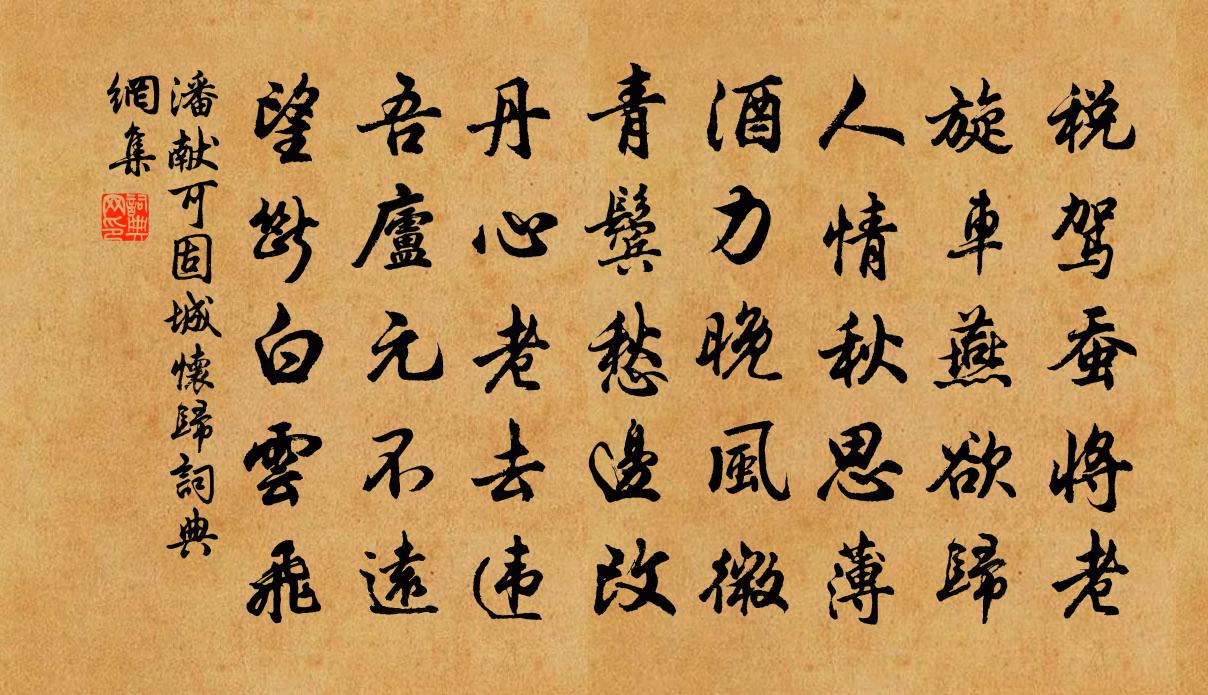 税驾蚕将老
旋車燕欲歸
人情秋思薄
酒力晚風微
青鬓愁邊改
丹心老去违
吾廬元不遠
望断白雲飛
潘献可固城懷歸詞典
網集
詞典
网印